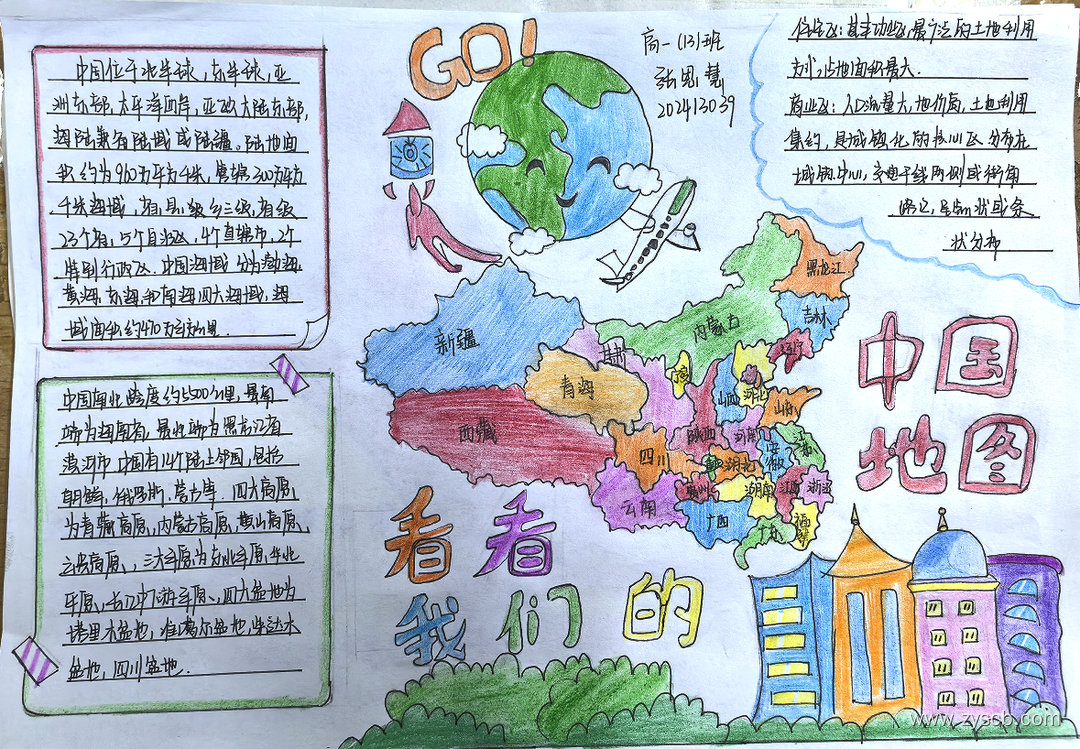 中国位于北半球,东半球,亚
洲东部,太平洋西岸,亚欧大陆东部,
海陆兼备陆域 或陆疆,陆地面
积约为960万平方千米,管辖300万平方
千米海域,省,县,级乡三级,省级
23个省,5个自治区,4个直辖市,2个
特别行政区.中国海域分为渤海
黄海,东海和南海四大海域,海
域面积约470万平方公里.
中国南北跨度约5500公里,最南
端为海南省,最北端为黑龙江省
漠河市.中国有14个陆上邻国,包括
朝鲜,俄罗斯,蒙古等.四大高原
为青藏高原,内蒙古高原,黄山高原、
云贵高原、,三大平原为东北平原,华北
平原,长江中下游平原、,四大盆地为
塔里木盆地,准噶尔盆地,柴达木
盆地,四川盆地.
GO!
高一(13)班
张思慧
202413039
住宅区:基本功能区最广泛的土地利用
方式,占地面积最大.
商业区:人口流量大,地价高,土地利用
集约,是城镇化的核心区,分布在
城镇中心,交通干线两侧或街角
路口,呈点状或条
状分布
黑龙江
吉林
辽宁
内蒙古
新疆
甘肃
青海
西藏
宁
河北
山西
山东
陕西
河南
江苏
安徽
四川
湖北
贵州
湖南
江西
浙江
云南
广西
广东
福建
中国
地图
看看
我们的
www.zyscb.com